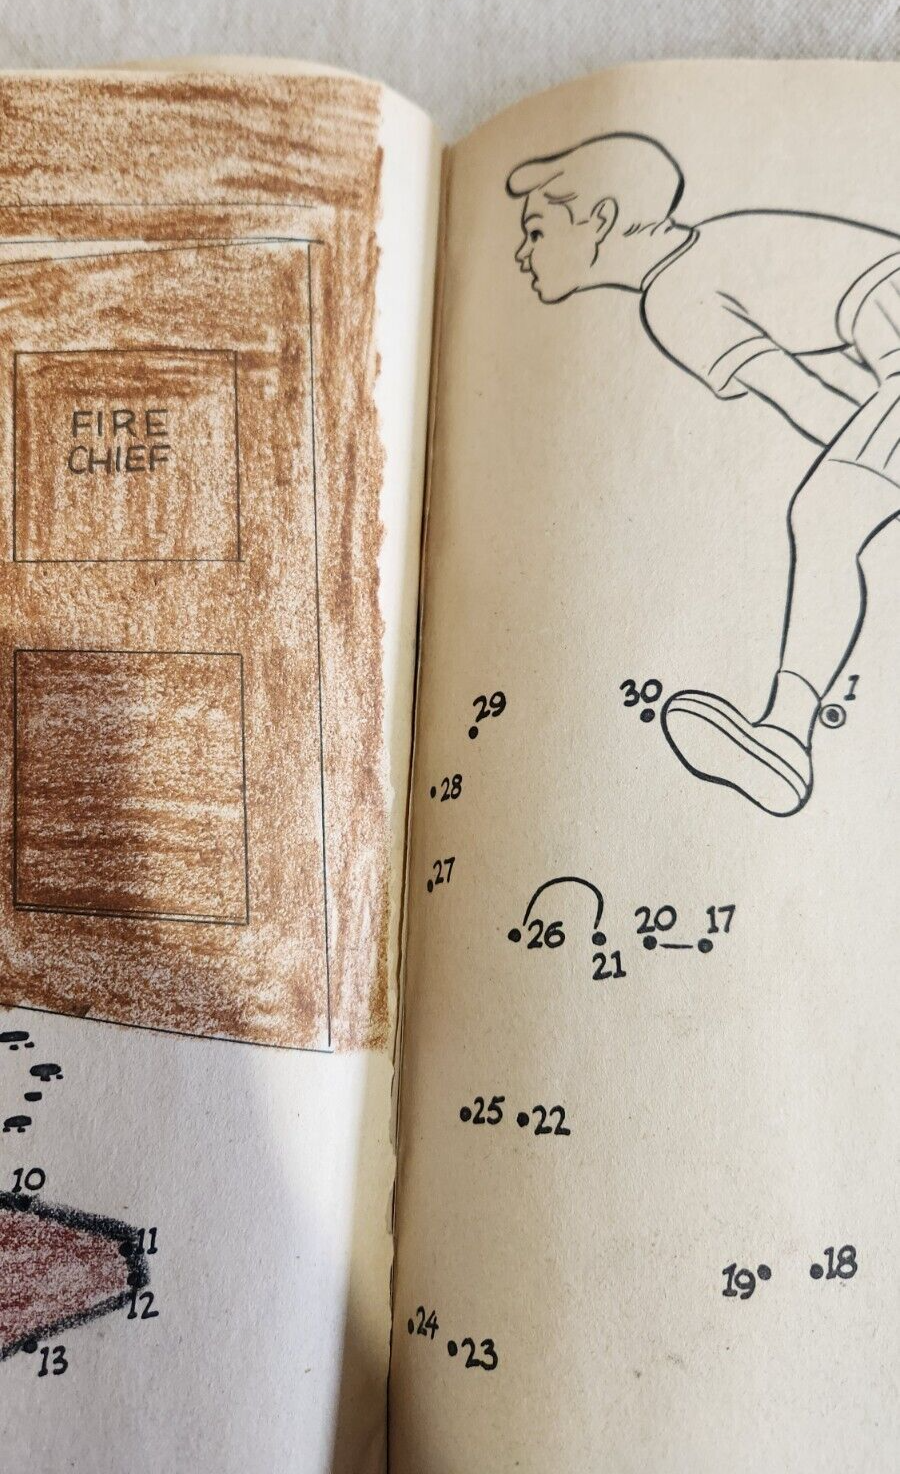 FIRE
CHIEF
10
11
12
13
30
1
29
28
27
26
21
20
17
25
22
19
18
24
23